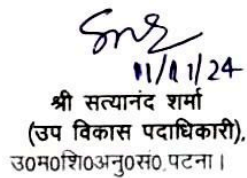 11/11/24
श्री सत्यानंद शर्मा
(उप विकास पदाधिकारी).
उ०म०शि०अनु०सं०.पटना।